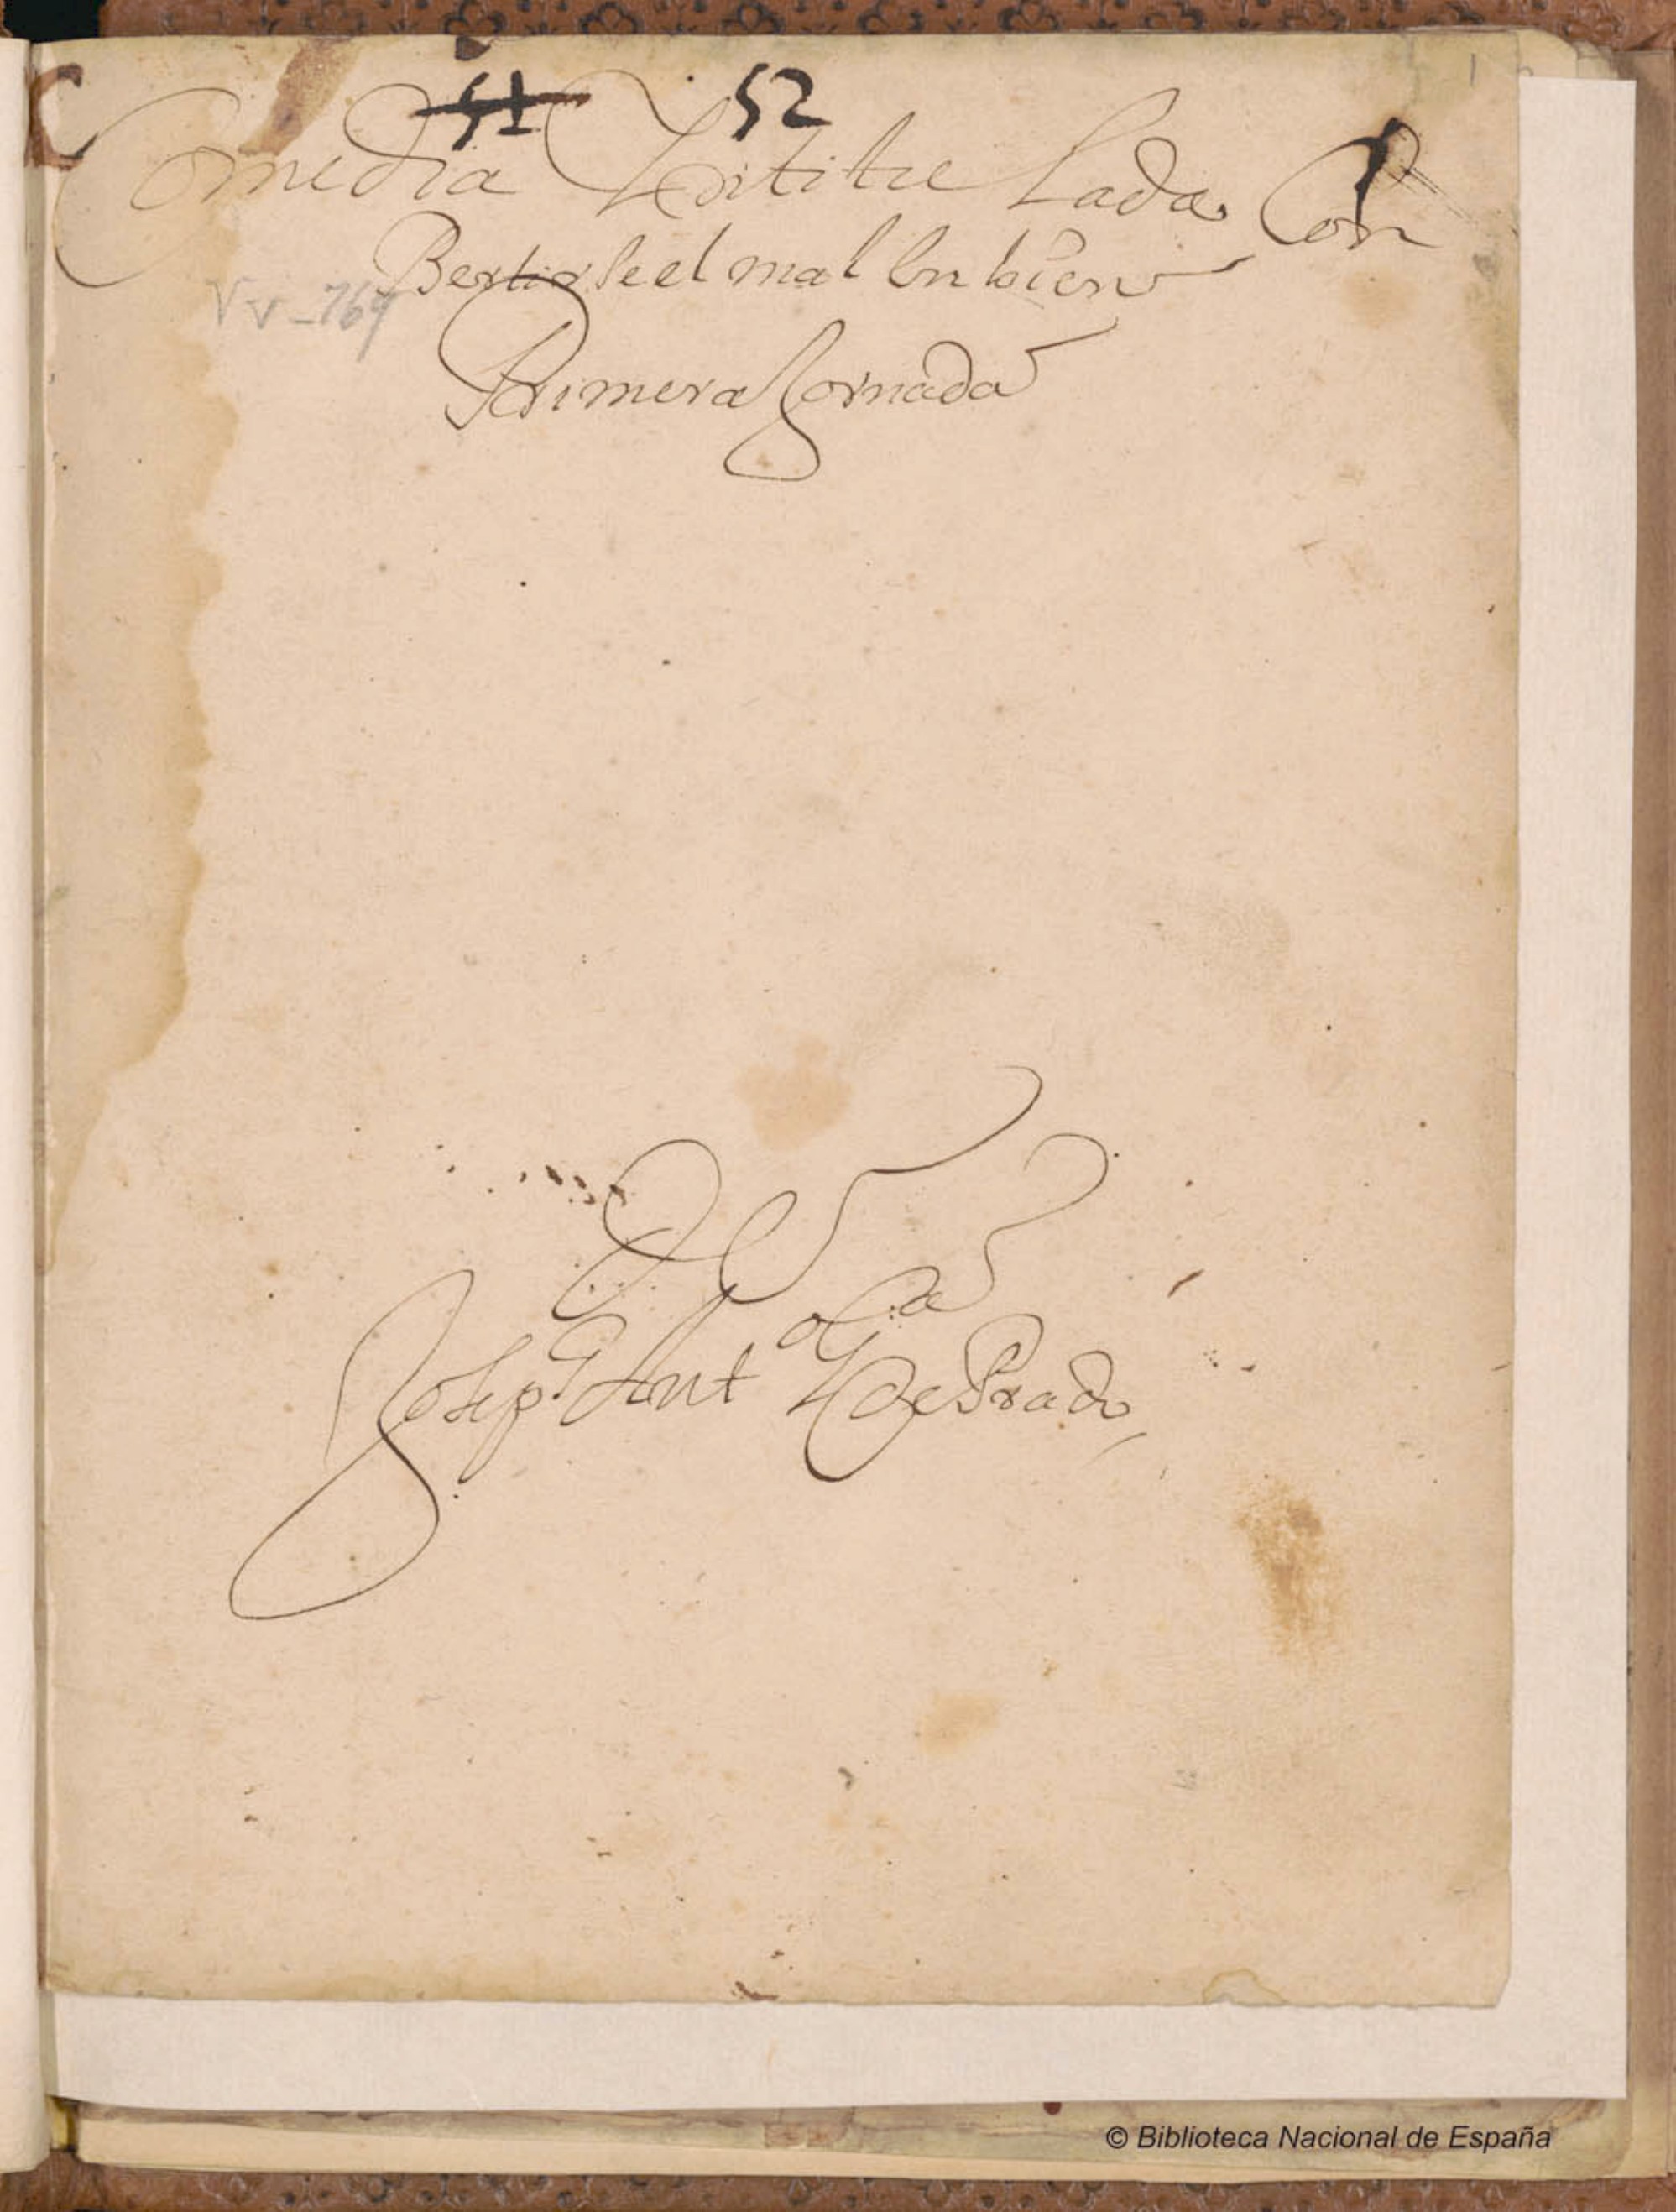 51 52 1
Comedia Yntitu lada Con
Bertirse el mal en bien
Vv-764
Primera Jornada
De
Joseph Ant de Prado
© Biblioteca Nacional de España